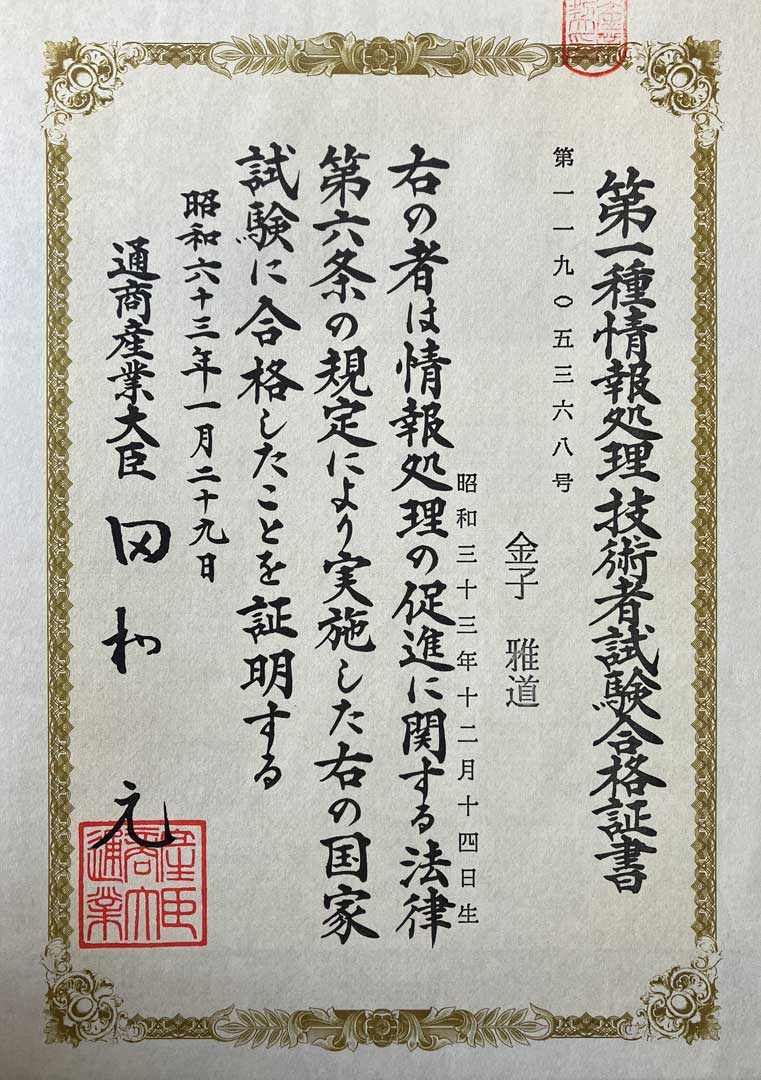 第一種情報処理技術者試験合格証書
第一一九〇五三六八号
金子 雅道
昭和三十三年十二月十四日生
右の者は情報処理の促進に関する法律
第六条の規定により実施した右の国家
試験に合格したことを証明する
昭和六十三年一月二十九日
通商産業大臣 田村 元
通商産業大臣